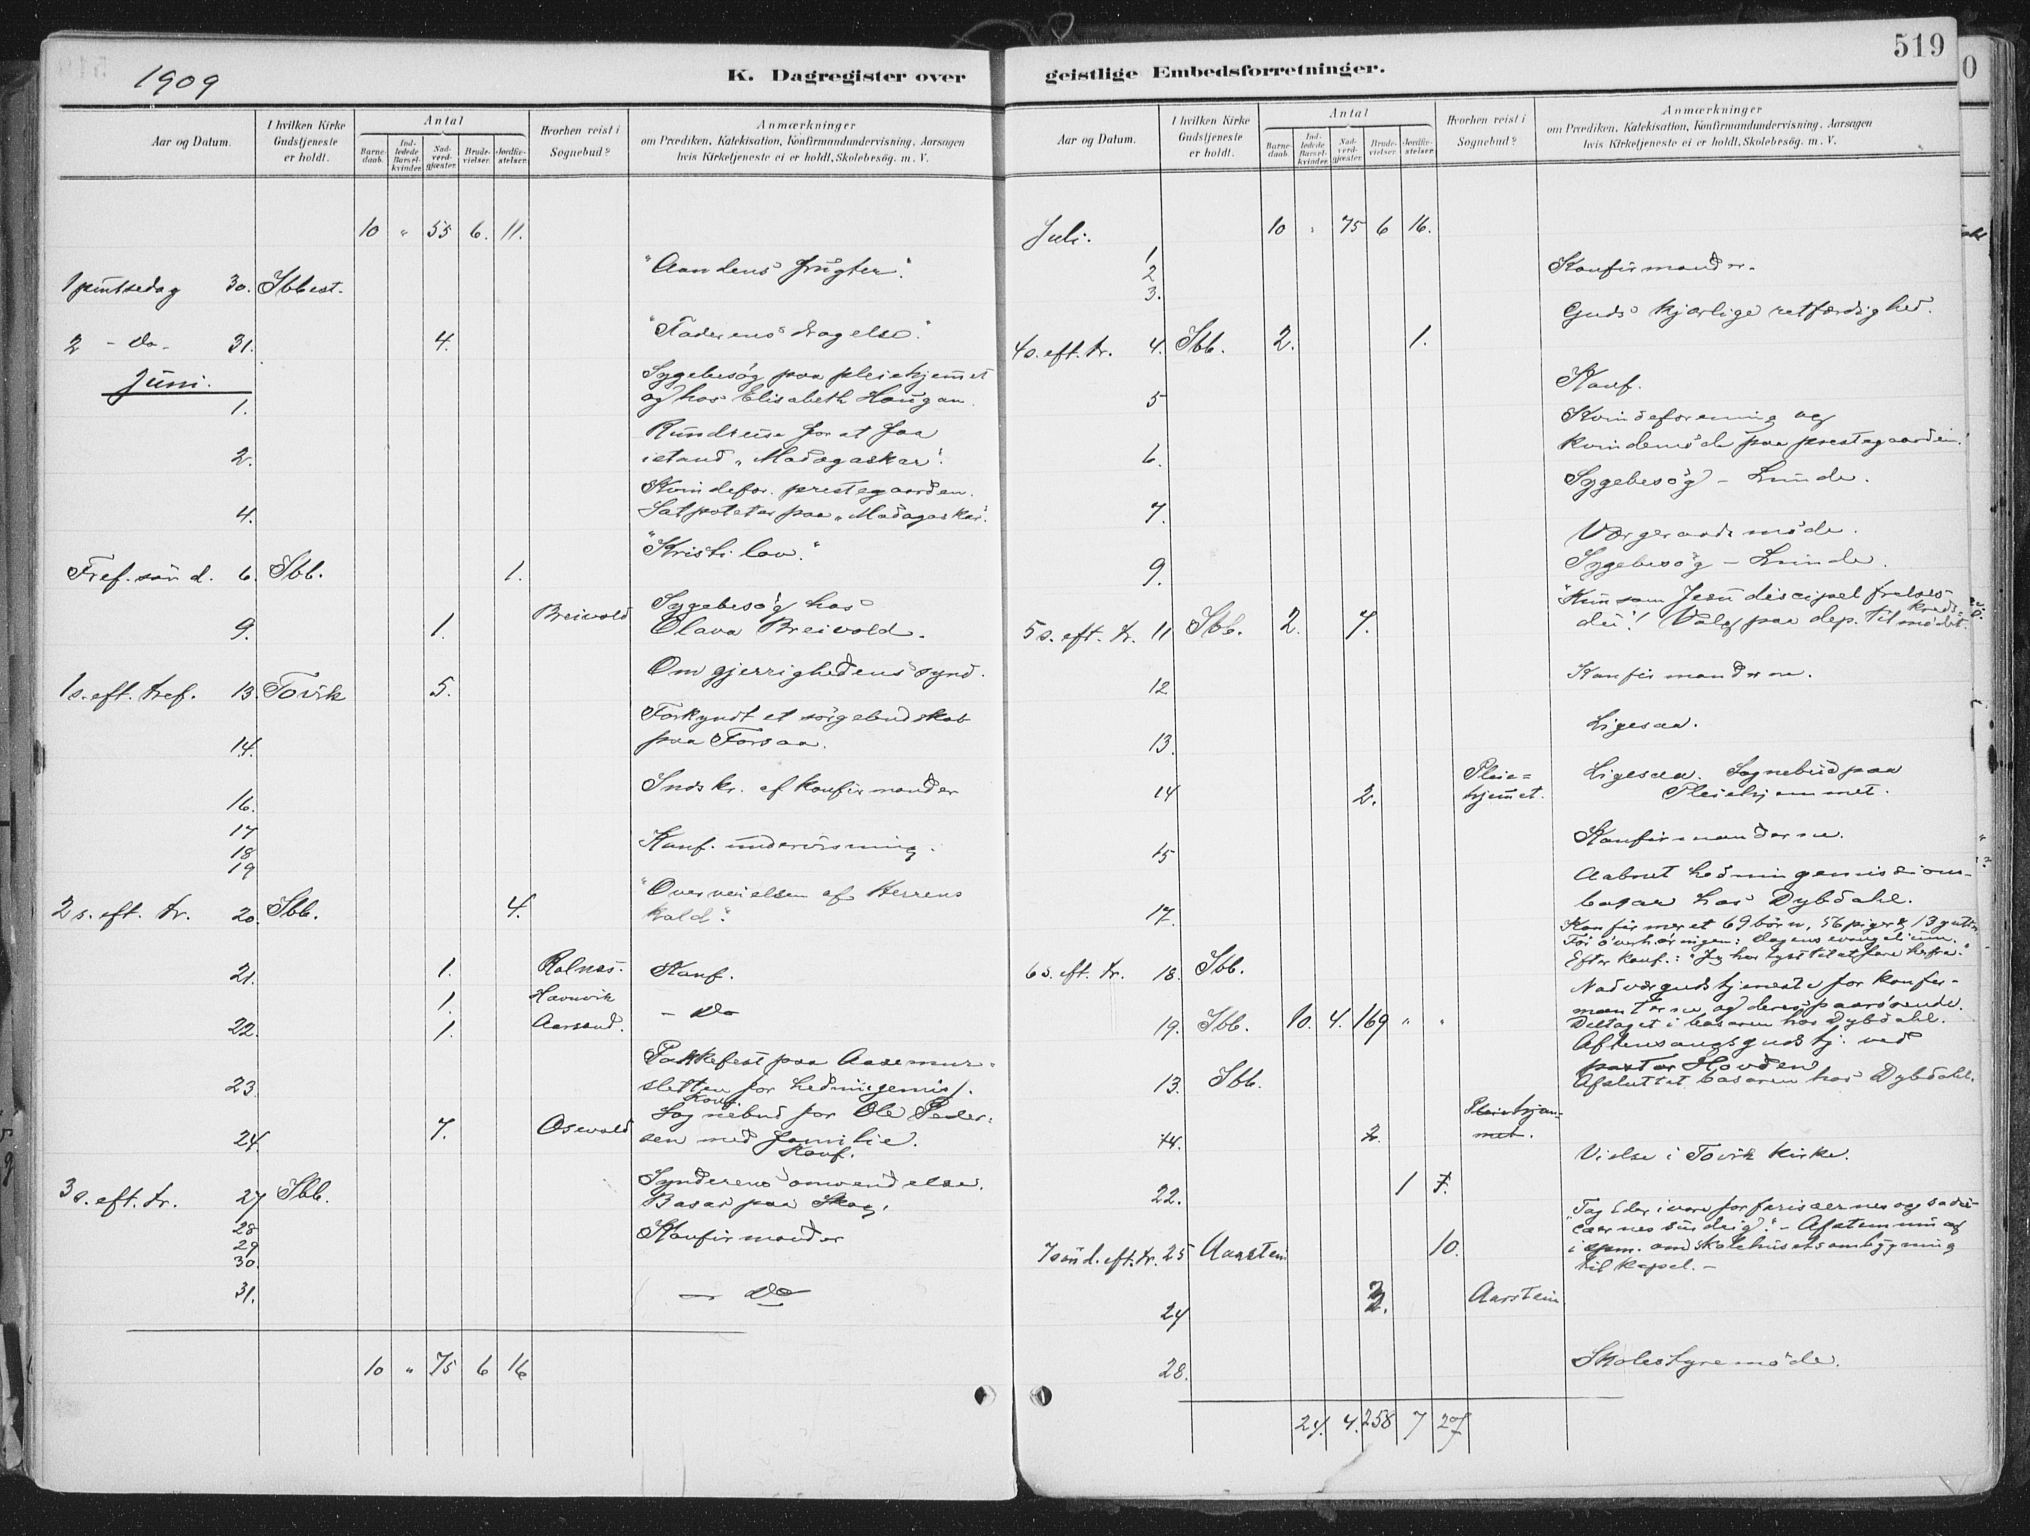 1909
K. Dagregister over
Aar og Datum.
I hvilken Kirke Gudstjeneste er holdt.
Antal
Barnedaab.
Indledede Barselkvinder.
Nadverdgjæster.
Brudevielser.
Jordfæstelser.
Hvorhen reist i Sognebud?
Anmærkninger
om Prædiken, Katekisation, Konfirmandundervisning, Aarsagen
hvis Kirketjeneste ei er holdt, Skolebesøg. m. V.
10 „ 55 6. 11.
1 pintsedag 30. Ibbest. "Aandens frugter".
2 - do - 31. 4. "Faderens dragelse".
Juni.
1. Sygebesøg paa pleiehjemmet
og hos Elisabeth Haugan.
2. Rundreise for at faa
istand „Madagaskar".
4. Kvindefor. prestegaarden.
Sat poteter paa „Madagaskar".
Tref. sønd. 6. Ibb. 1. "Kristi lov."
9. 1. Breivold Sygebesøg hos
Olava Breivold.
1 s. eft. tref. 13. Tovik 5. Om gjerrighedens synd.
14. Forkyndt et sørgebudskab
paa Forsaa.
16. Indskr. af konfirmander
17
18 Konf. undervisning.
19
2 s. eft. tr. 20. Ibb. 4. "Overveielsen af Herrens
kald".
21. 1. Rolnæs. Konf.
1. Havnvik
22. 1. Aarsand. - do
23. Pakkefest paa Aasemur-
sletten for hedningemis/.
Konf.
24. 7. Osevold Sognebud for Ole Peder-
sen med familie.
Konf.
3 s. eft. tr. 27 Ibb. Synderens omvendelse.
Basar paa Skog.
28 Konfirmander
29
30.
31. - do
10 „ 75 6 16
519
geistlige Embedsforretninger.
Aar og Datum.
I hvilken Kirke Gudstjeneste er holdt.
Antal
Barnedaab.
Indledede Barselkvinder.
Nadverdgjæster.
Brudevielser.
Jordfæstelser.
Hvorhen reist i Sognebud?
Anmærkninger
om Prædiken, Katekisation, Konfirmandundervisning, Aarsagen
hvis Kirketjeneste ei er holdt, Skolebesøg. m. V.
Juli. 10 „ 75 6 16.
1
2 Konfirmander.
3.
4 s. eft. tr. 4. Ibb. 2. 1. Guds kjærlige retfærdighed.
5 Konf.
6. Kvindeforening og
kvindemøde paa prestegaarden.
7. Sygebesøg - Lunde.
9. Værgeraadsmøde.
Sygebesøg - Lunde.
5 s. eft. tr. 11 Ibb. 2. 7. "Kun som Jesu discipel frelses
du"! Valg paa dep. til kreds-
mødet.
12 Konfirmanderne.
13. Ligesaa.
14 2. Pleie-
hjemmet. Ligesaa. Sognebud paa
Pleiehjemmet.
15 Konfirmanderne.
17. Aabnet hedningemissions-
basar hos Dybdahl.
6 s. eft. tr. 18. Ibb. Konfirmeret 69 børn, 56 piger & 13 gutter
Før overhøringen: Dagens evangelium.
Efter konf.: "Jeg har lyst til at fare herfra."
19. Ibb. 10. 4. 169 „ „ Nadværgudstjeneste for konfir-
manterne og deres paarørende.
Deltaget i basaren hos Dybdahl.
13. Ibb. Aftensangsgudstj. ved
pastor Hovden
Afsluttet basaren hos Dybdahl.
14. 2. Pleiehjem-
met.
22. 1 7. Vielse i Tovik kirke.
7 sønd. eft. tr. 25 Aarstein 10. Tag Eder ivare for farisæernes og saddu-
cæernes surdeig". - Afstemning
i spm. om skolehusets ombygning
til kapel. -
24 2. Aarstein
28. Skolestyremøde.
24. 4. 258 7 27